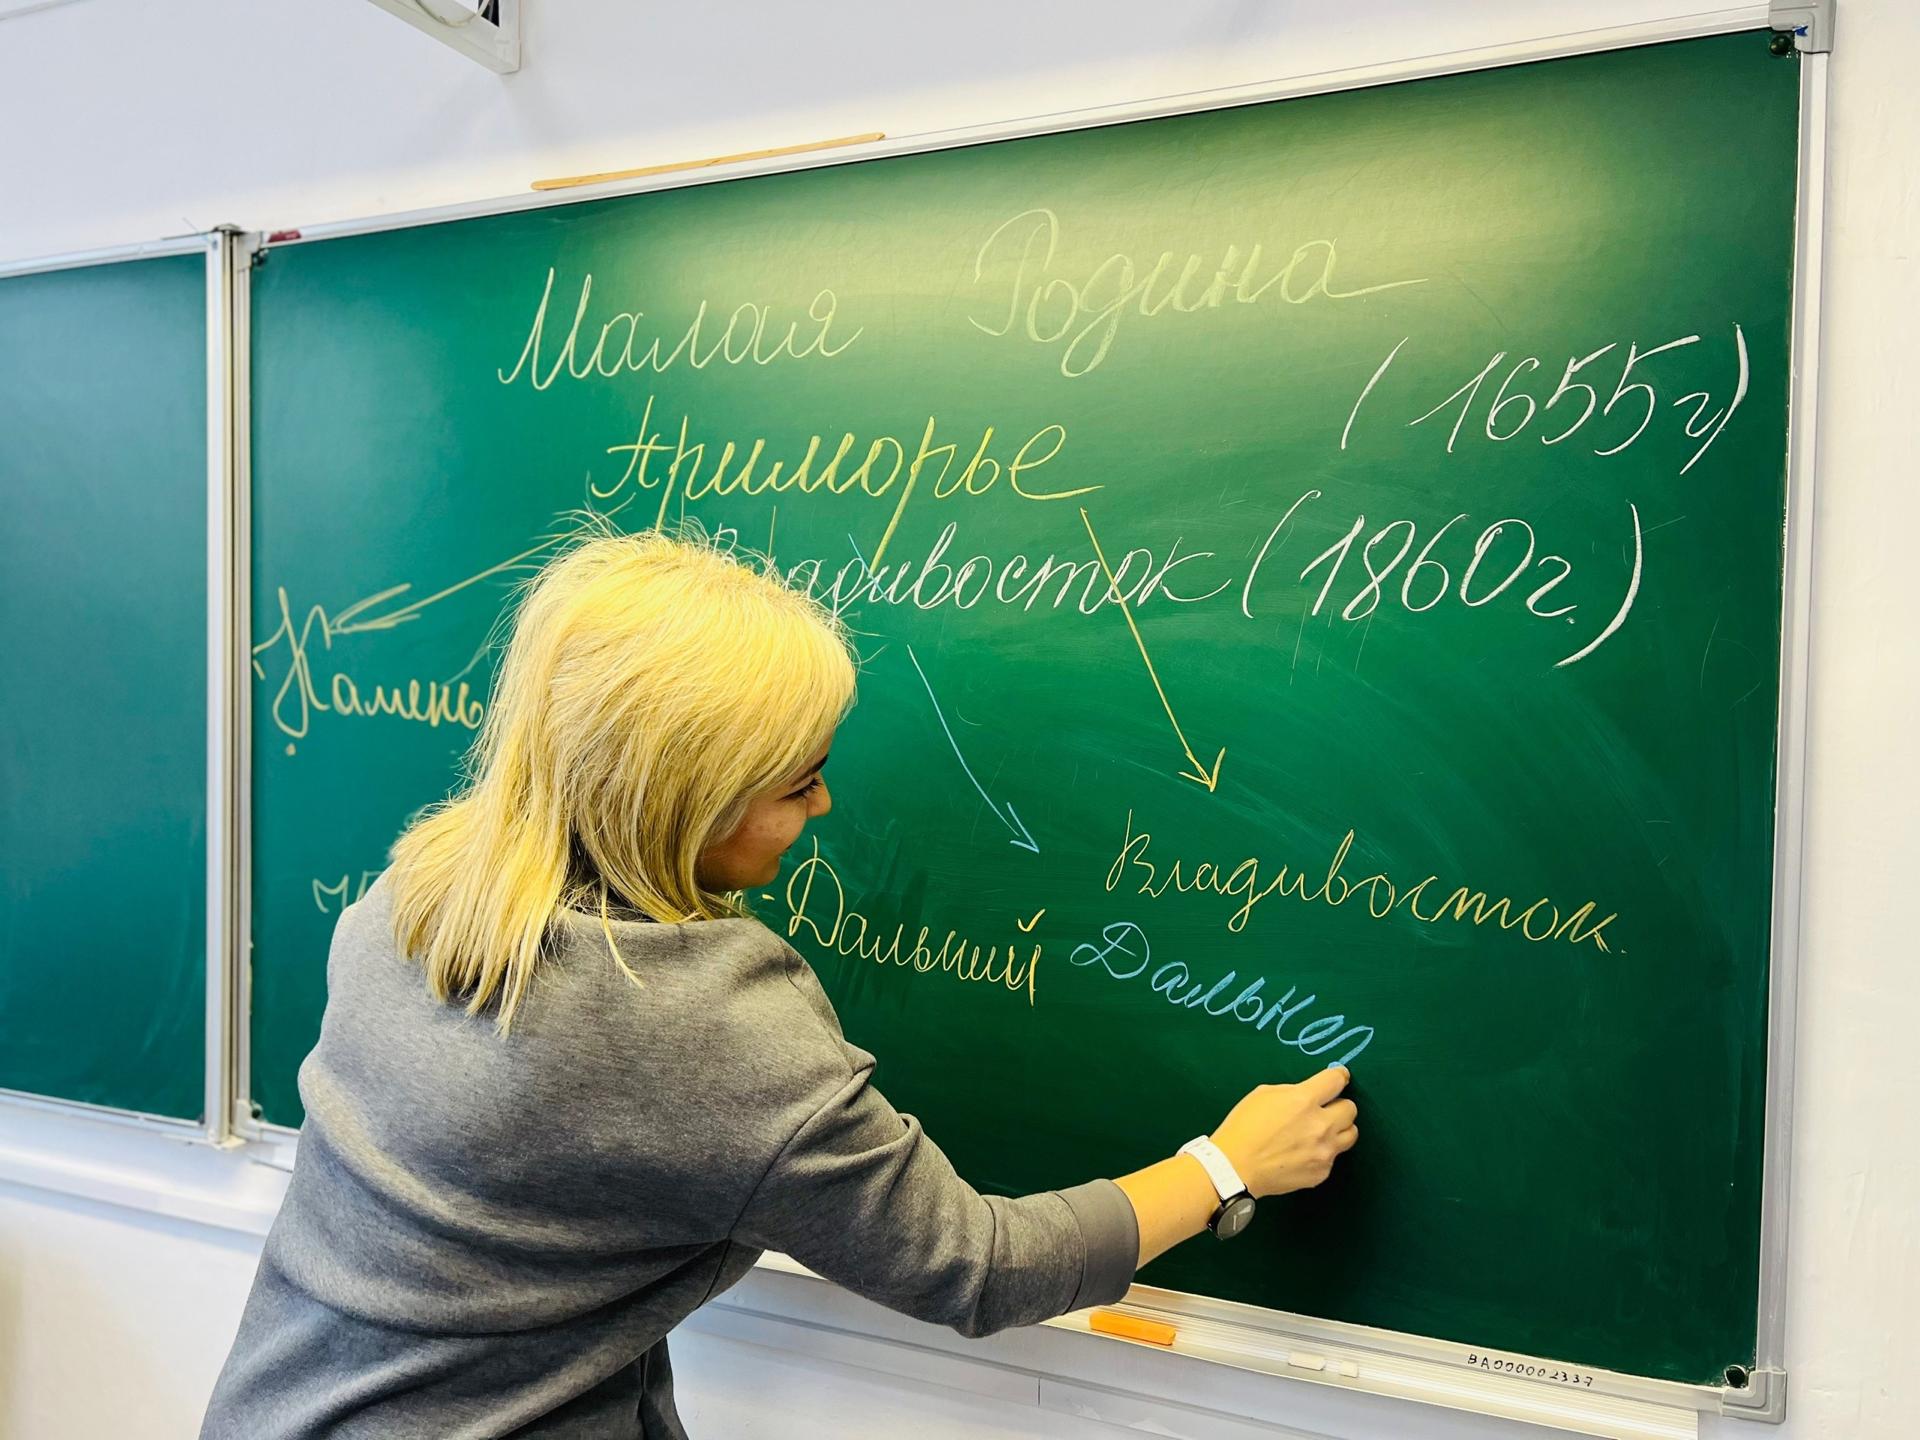 Малая Родина
(1655г)
Приморье
Владивосток (1860г.)
Камень
Владивосток.
-Дальний
Дальнег
BA000002337